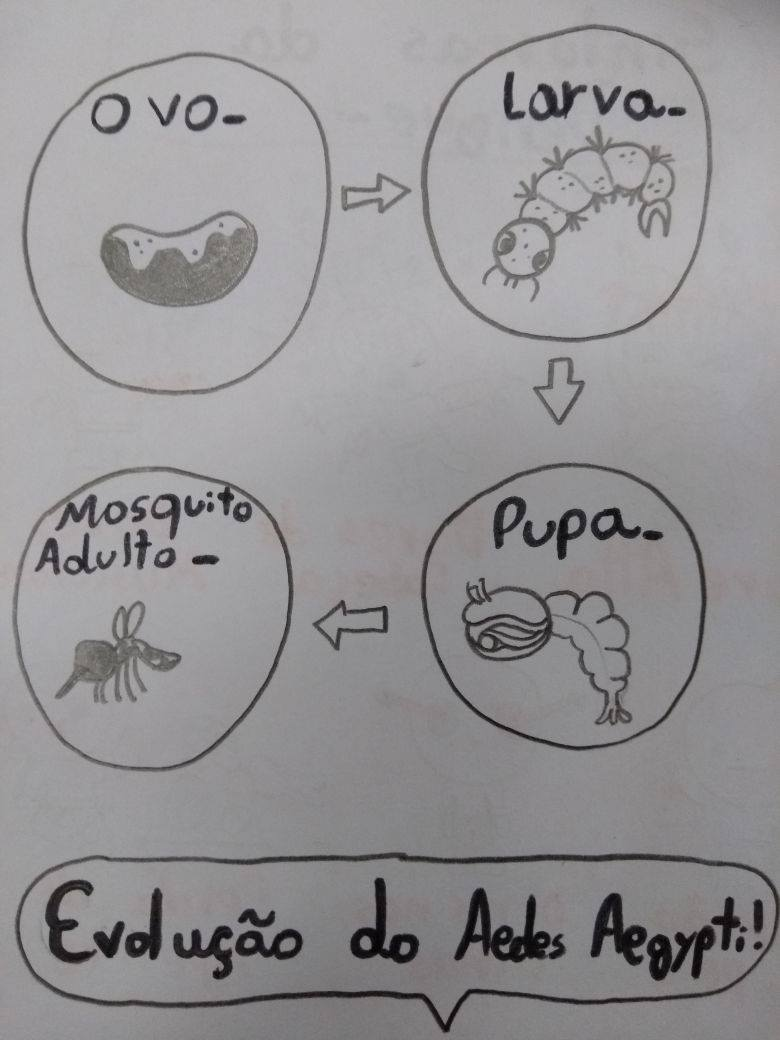 Ovo-
Larva-
Pupa-
Mosquito
Adulto-
Evolução do Aedes Aegypti!